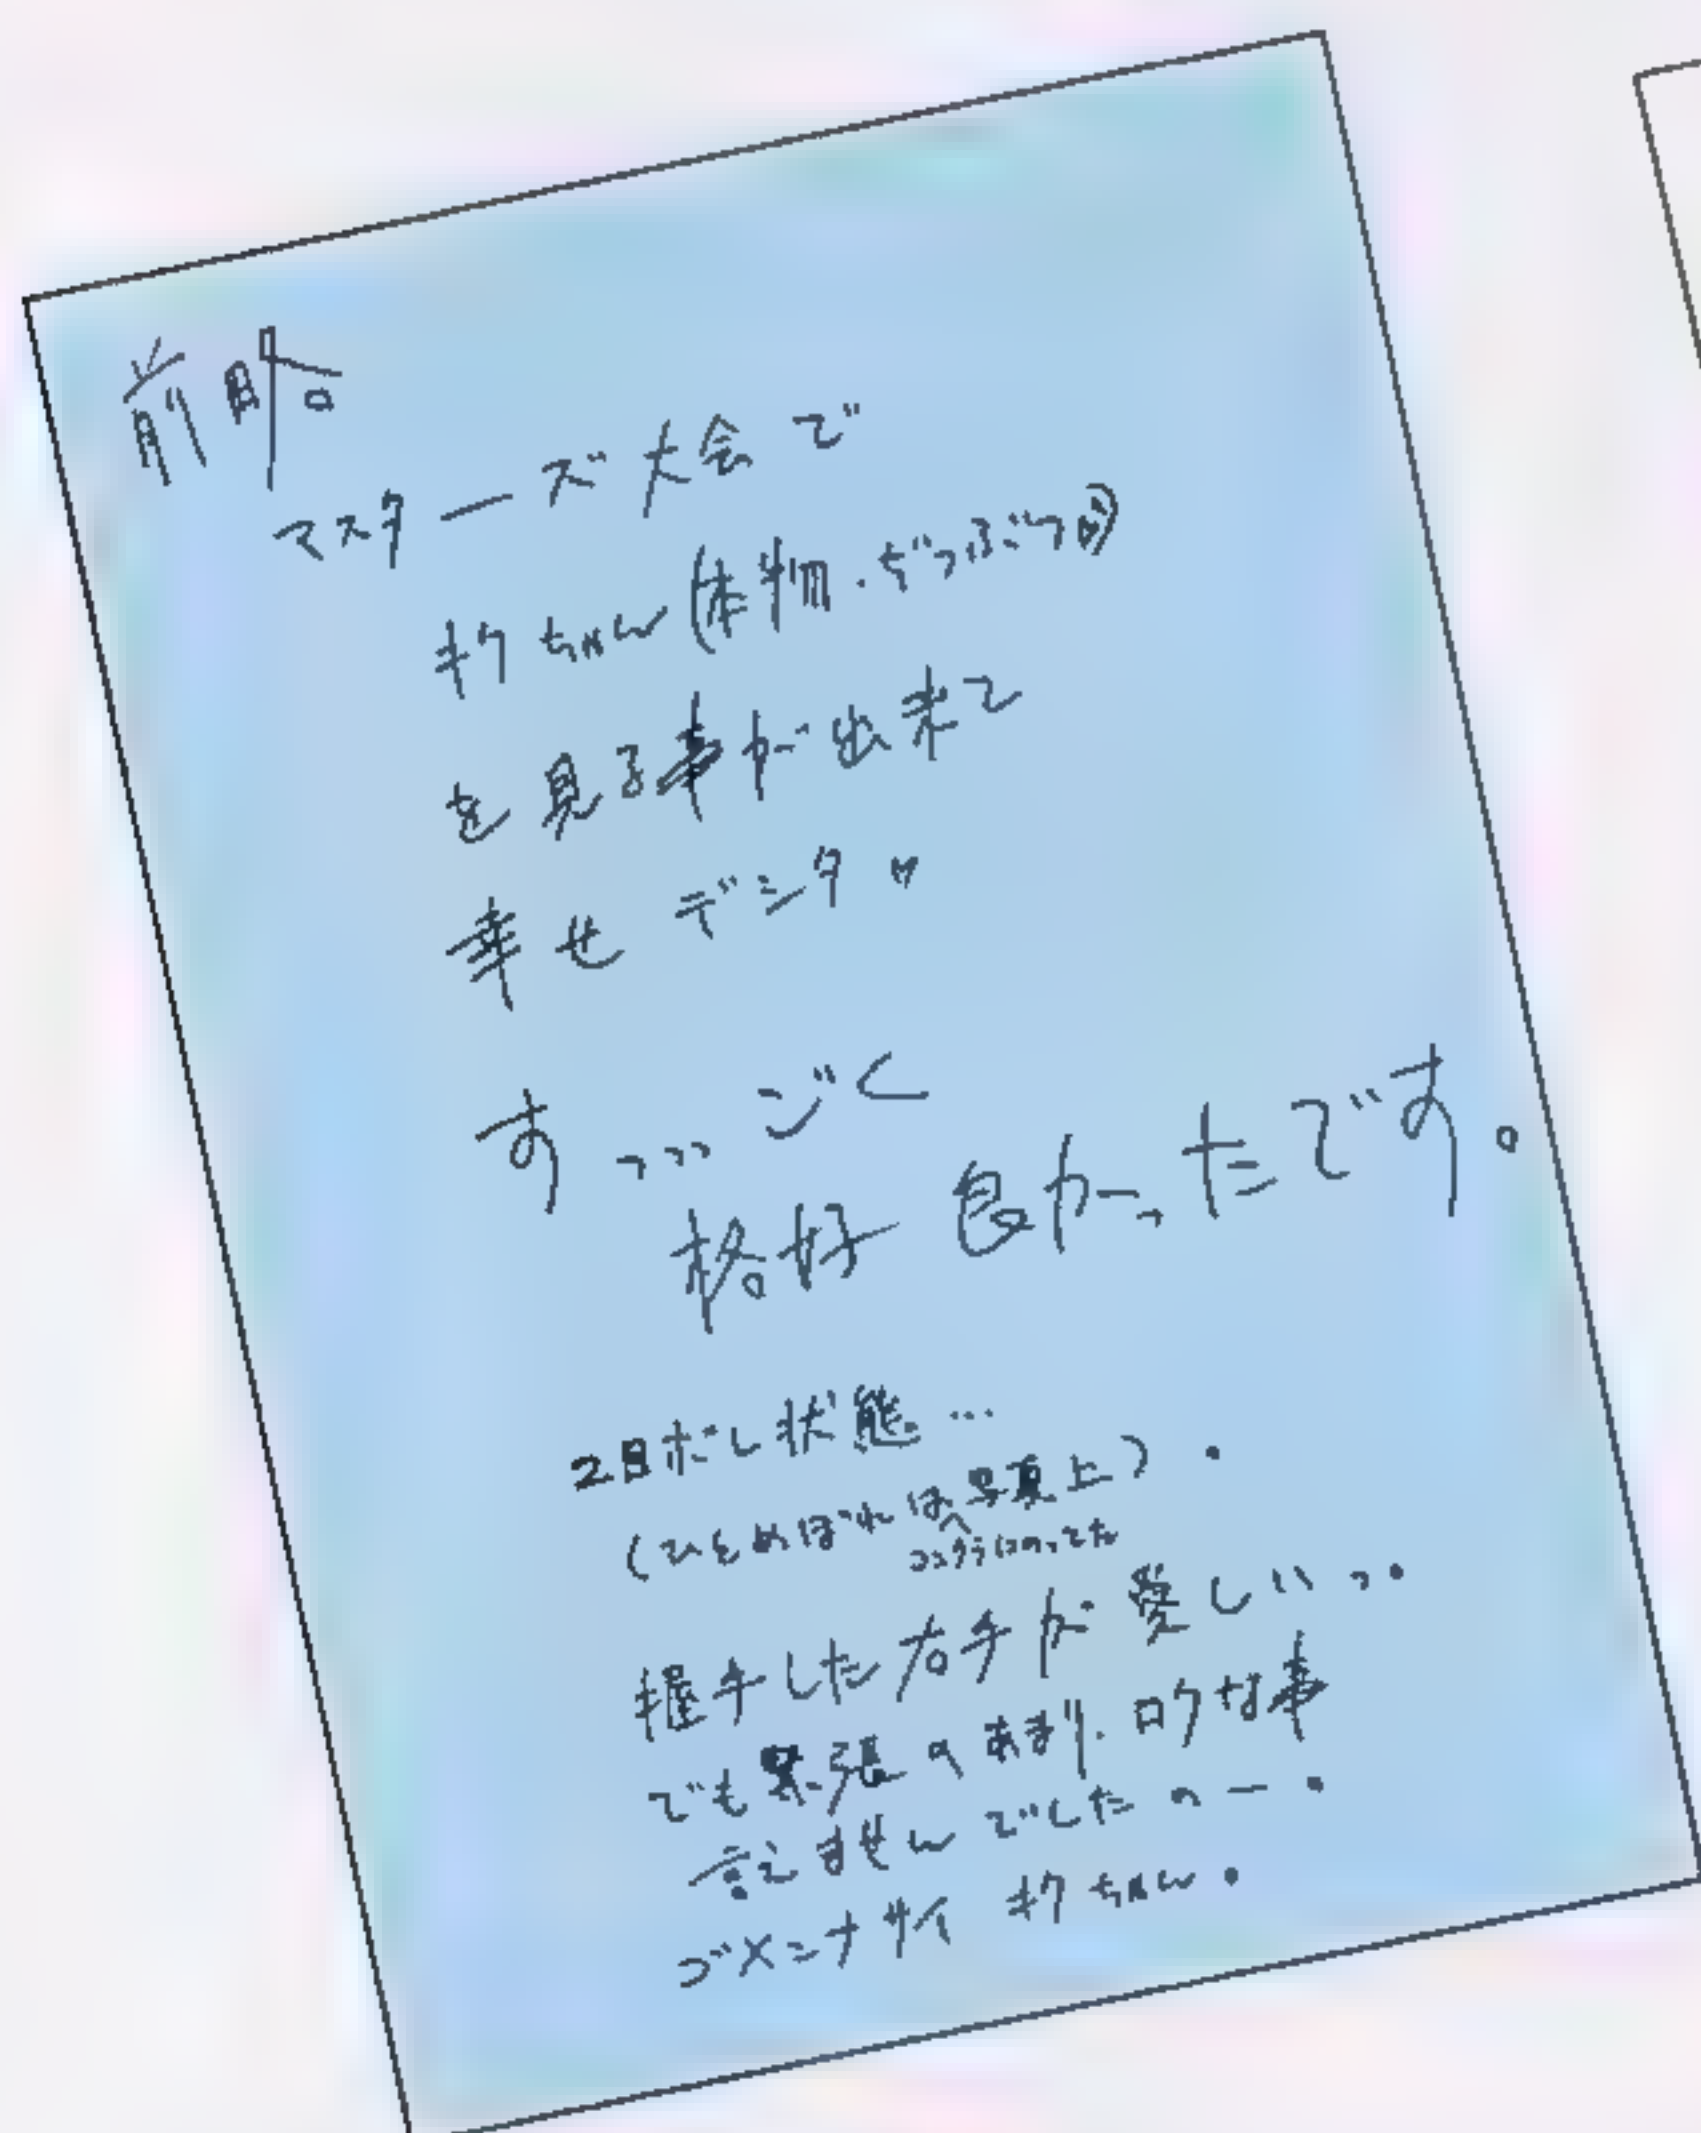 前略
マスターズ大会で
キクちゃん(本物・どつぶつ
を見る事が出来て
幸せデシタ♥
すっっっごく
格好良かったです。
2目ボレ状態…
(ひとめぼれは写真上).
コンクラにのってた
握手した右手が愛しいっ.
でも緊張のあまり.ロクな事
言えませんでしたのー.
ゴメンナサイキクちゃん.